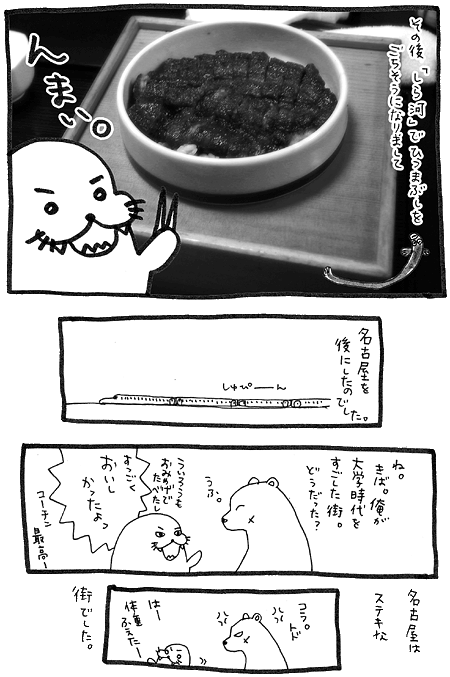 その後「しら河」でひつまぶしを
ごちそうになりまして
んまい。
名古屋を
後にしたのでした。
しゅぴーん
ね。
きば。俺が
大学時代を
すごした街。
どうだった?
うふ。
ういろうも
おみやげで
たべたし
すっごく
おいし
かったよっ
コーチン
最高ー
名古屋は
ステキな
コラ。
トド
はー
体重
ふえたー
街でした。